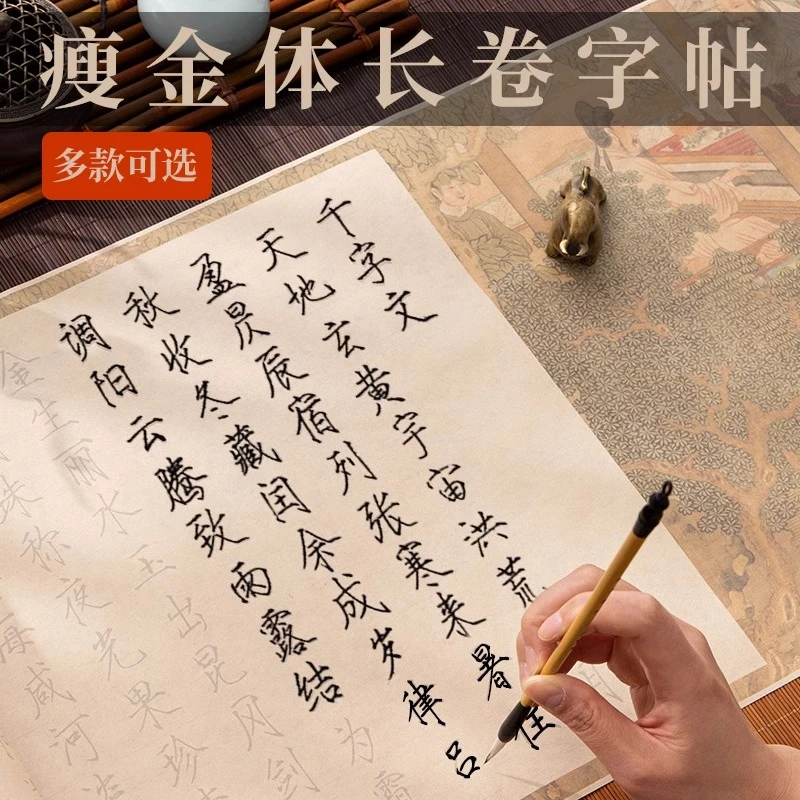 瘦金体长卷字帖
多款可选
千字文
天地玄黄宇宙洪荒
盈昃辰宿列张寒来暑往
秋收冬藏闰余成岁律吕
调阳云腾致雨露结为霜
金生丽水玉出昆冈剑
珠称夜光果珍
海咸河